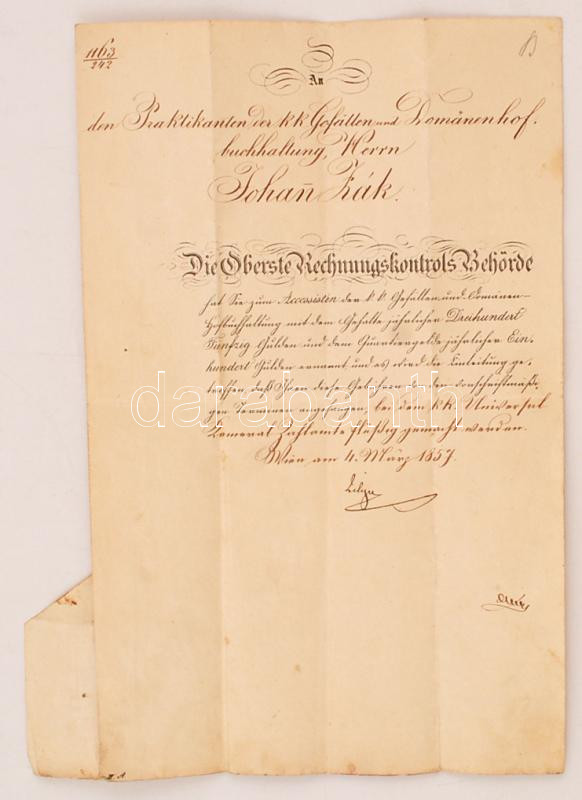 1163
242
B
An
den Praktikanten der kk Gefällen und Domänenhof-
buchhaltung, Herrn
Johañ Žák.
Die Oberste Rechnungskontrols Behörde
hat Sie zum Accessisten der k k Gefällen und Domänen-
Hofbuchhaltung mit dem Gehalte jährlicher Dreihundert
Fünfzig Gulden und dem Quartiergelde jährlicher Ein-
hundert Gulden ernannt und es wird die Einleitung ge-
troffen, daß Ihnen diese Gebühren in den vorschriftmäßi-
gen Terminen angefangen bei dem kk Universal
Cameral Zahlamte flüßig gemacht werden.
Wien am 4. März 1857.
darabanth